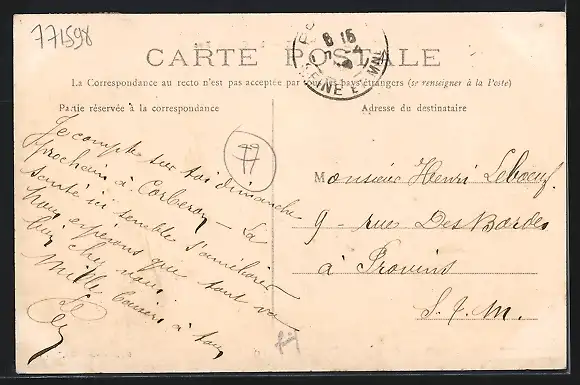 771598
CARTE POSTALE
8 15
SEINE E
La Correspondance au recto n'est pas acceptée par tous les pays étrangers (se renseigner à la Poste)
Partie réservée à la correspondance
Adresse du destinataire
77
Je compte sur toi dimanche
prochain à Corberon - La
santé ici semble s'améliorer
Nous espérons que tout va
bien chez vous
Mille baisers à tous
Monsieur Henri Leboeuf
9 - rue Des Bordes
à Provins
S. & M.